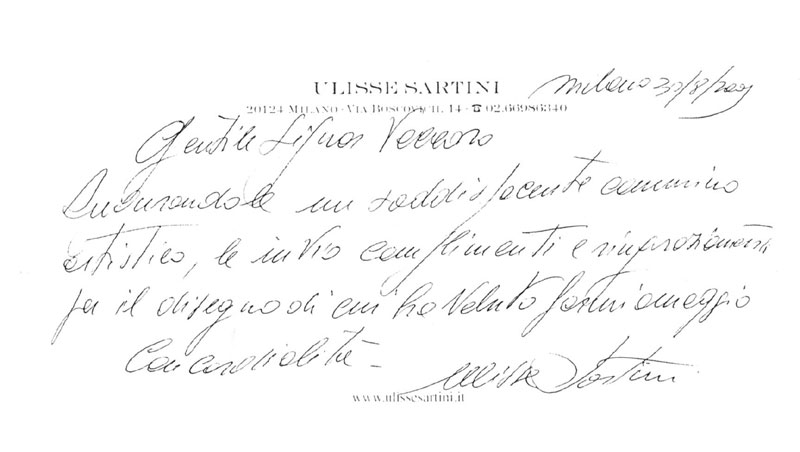 ULISSE SARTINI
Milano 30/8/2009
20124 MILANO - VIA BOSCOVICH, 14 - ☎ 02.66986340
Gentile Signor Vaccaro
Augurandole un soddisfacente cammino
artistico, le invio complimenti e ringraziamenti
per il disegno di cui ha voluto farmi omaggio
Con cordialità -
Ulisse Sartini
www.ulissesartini.it